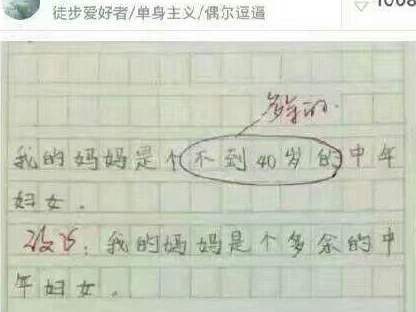 徒步爱好者/单身主义/偶尔逗逼
1008
多余的.
我的妈妈是个不到40岁的中年
妇女.
改为:我的妈妈是个多余的中
年妇女.